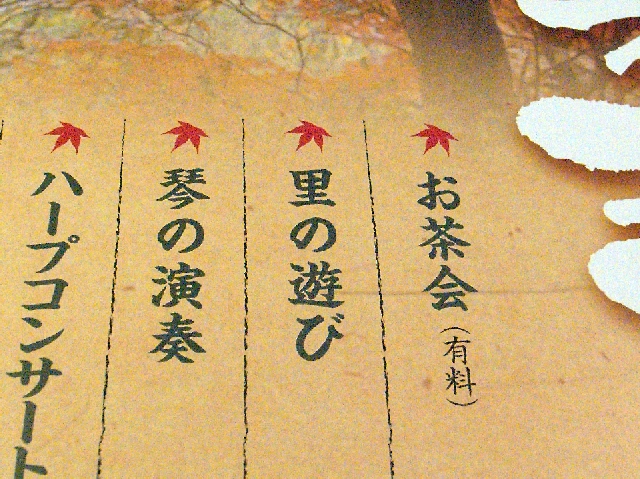 お茶会(有料)
里の遊び
琴の演奏
ハープコンサート